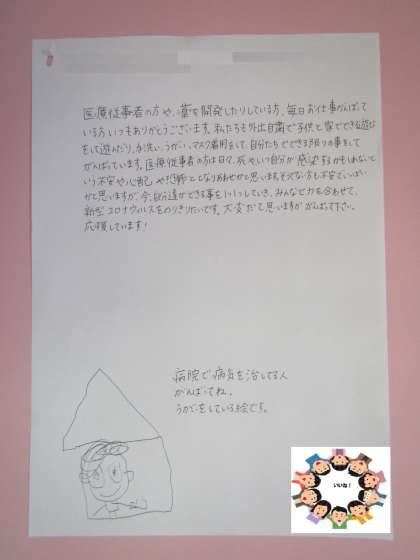 医療従事者の方や、薬を開発したりしている方、毎日お仕事がんばって
いる方いつもありがとうございます。私たちも外出自粛で子供と家でできる遊び
をして遊んだり、手洗い、うがい、マスク着用をして、自分たちでできる限りの事をして
がんばっています。医療従事者の方は日々、死やいつ自分が感染するかもしれないと
いう不安や心配や恐怖ととなりあわせかと思います。そうでない方も不安でいっぱい
かと思いますが、今、自分達ができる事を していき、みんなで力を合わせて、
新型コロナウィルスをのりきりたいです。大変だと思いますががんばって下さい。
応援しています!
病院で病気を治してる人
がんばってね。
うがいをしている絵です。
いいね!